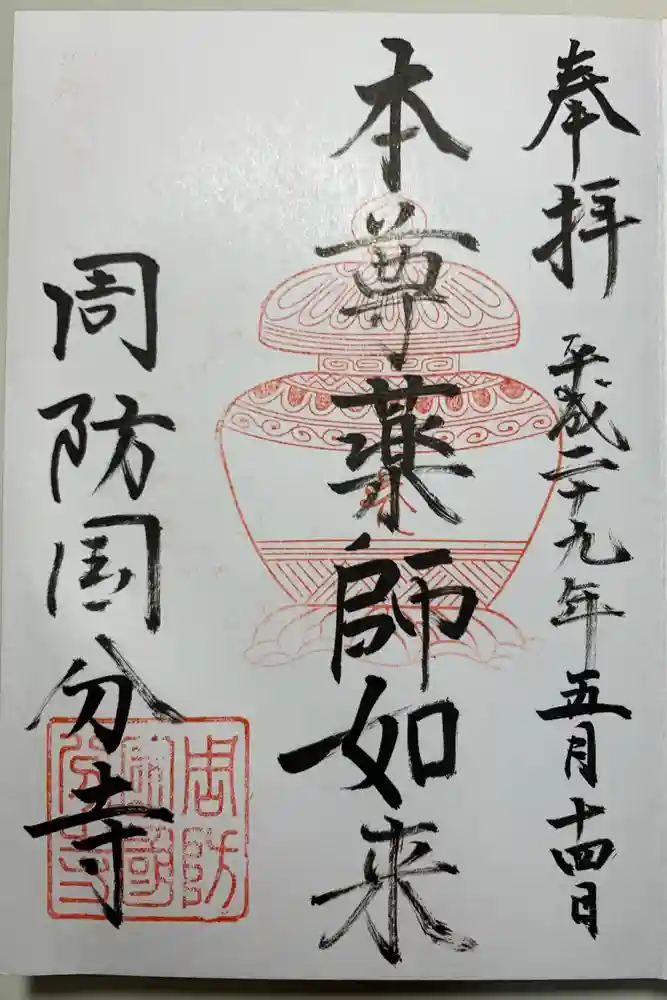 奉拝 平成二十九年五月十四日
本尊薬師如来
周防国分寺
周防
國
分寺